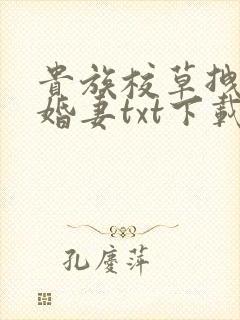 貴族校草拽
婚妻txt下載
孔慶萍